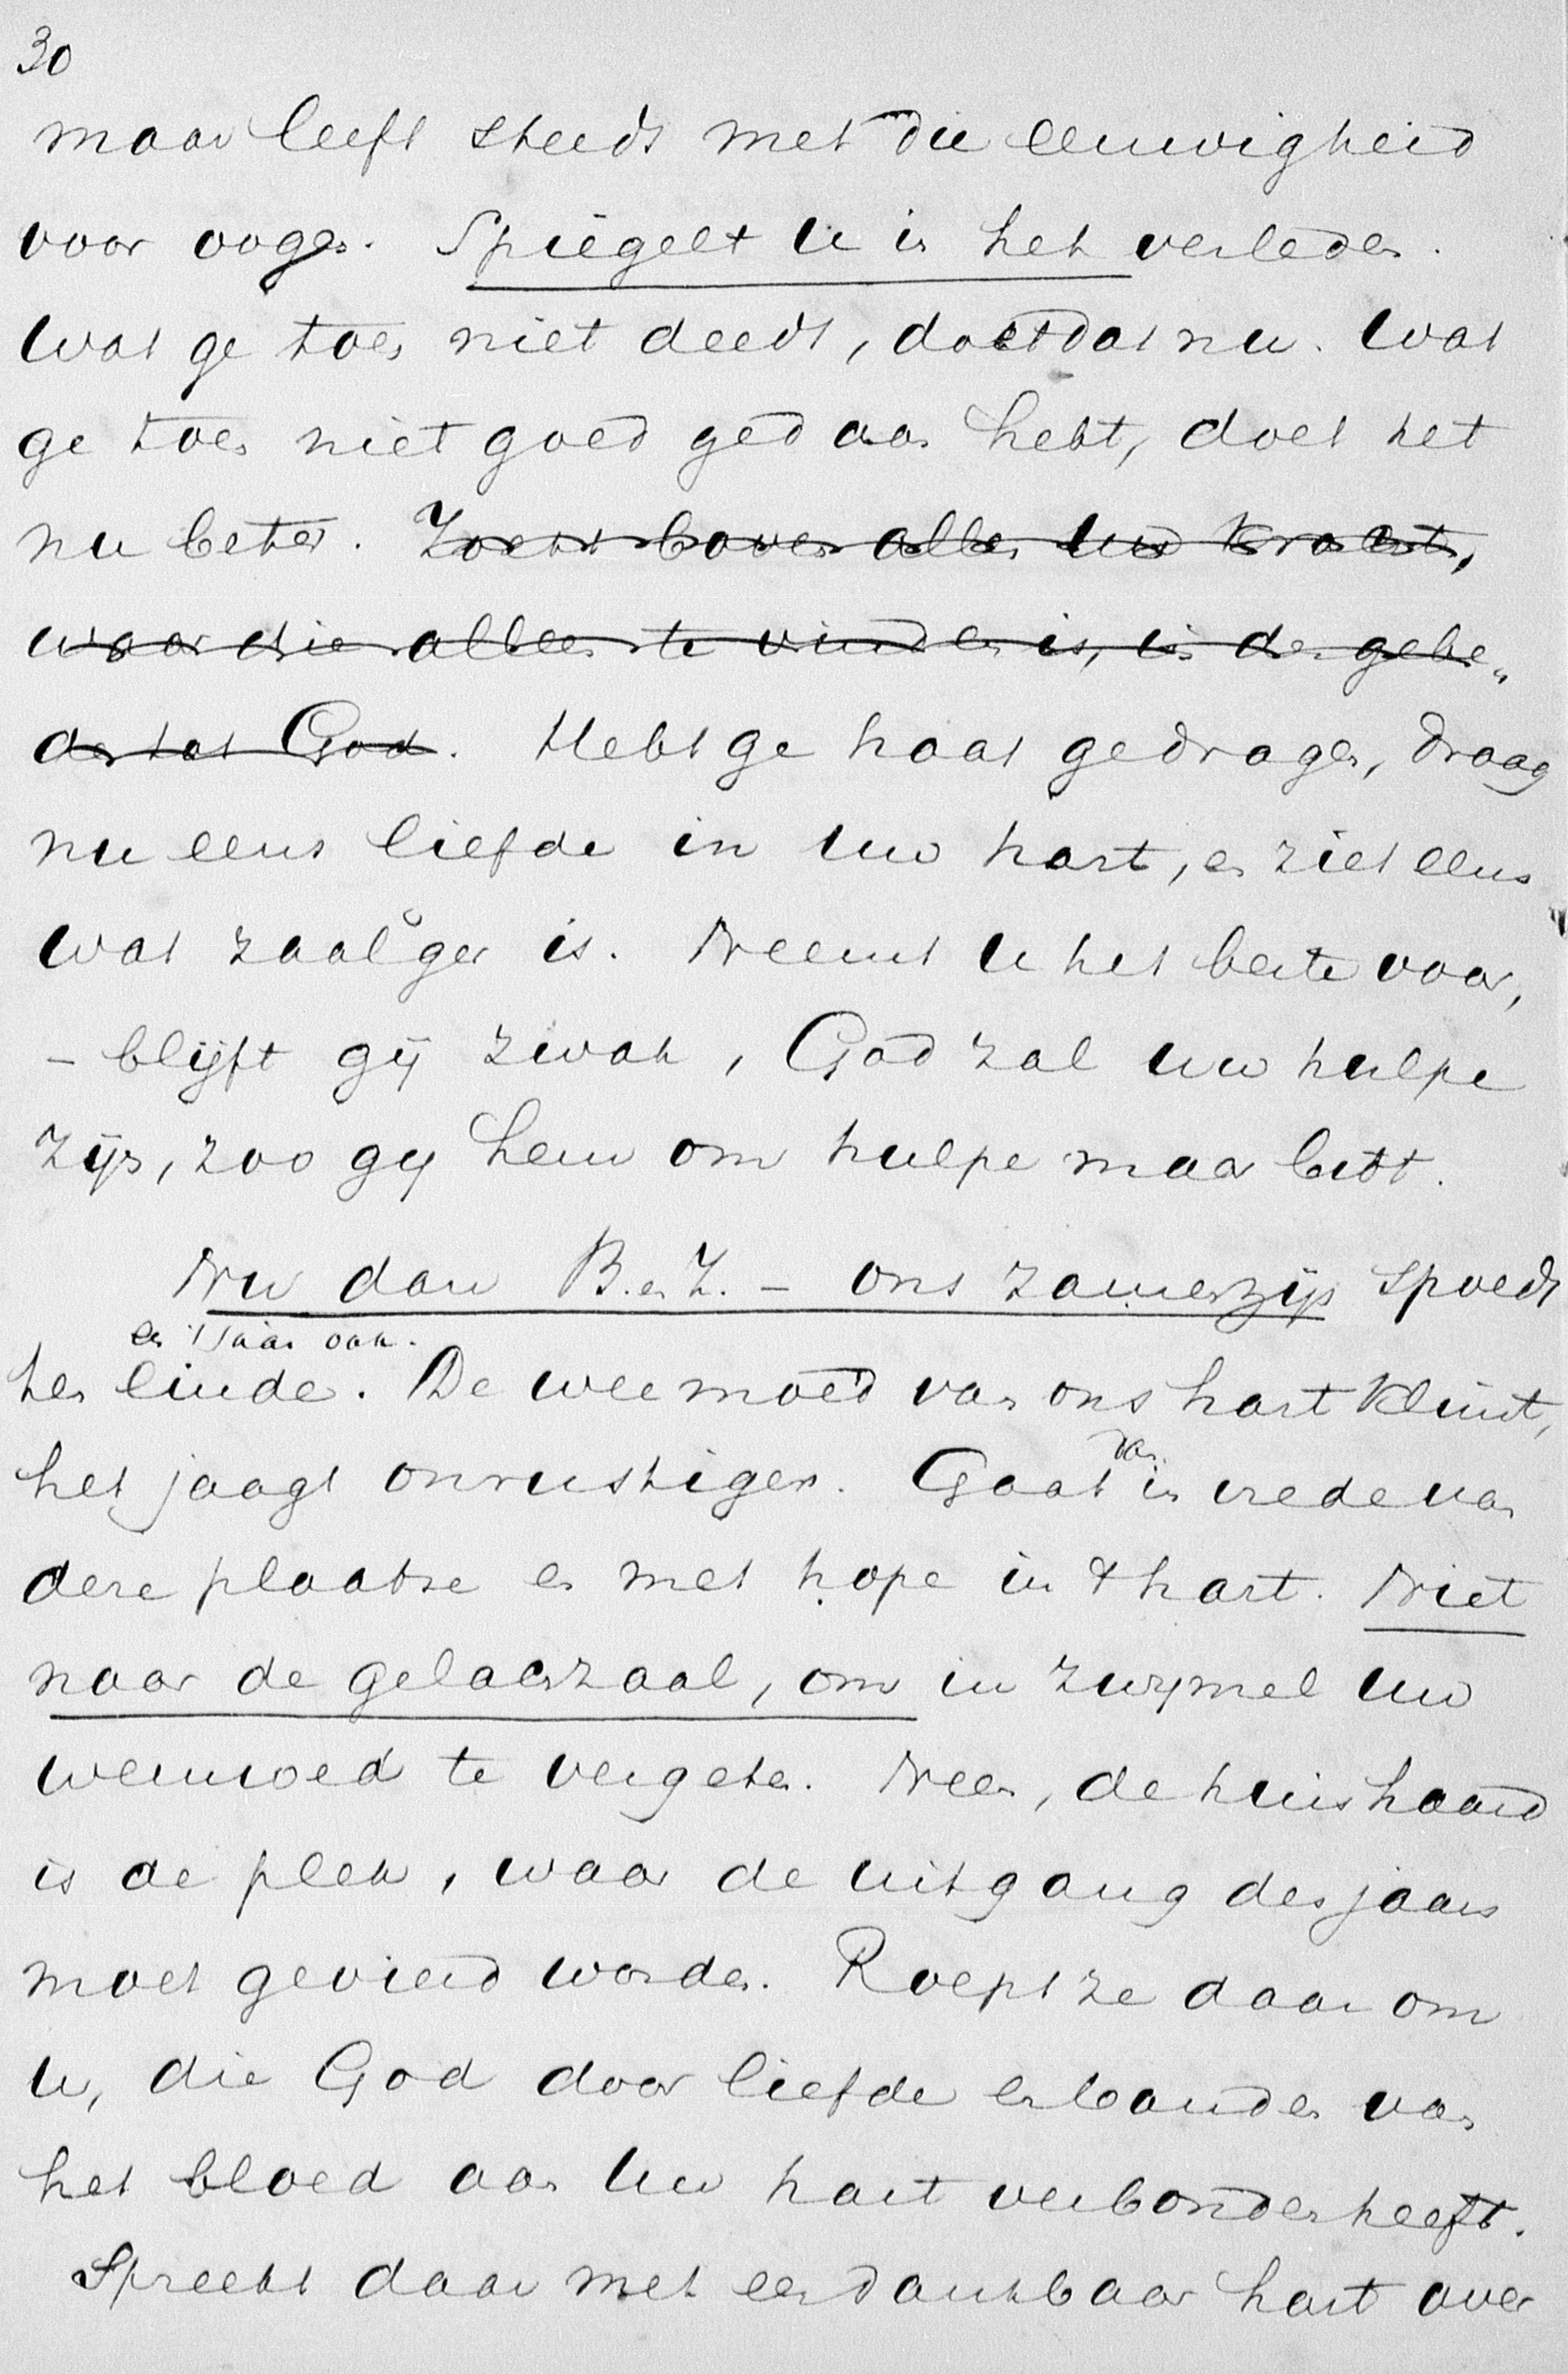 30
maar leeft steeds met die eeuwigheid
voor oogen. Spiegelt U in het verleden.
Wat ge toen niet deedt, doet dat nu. Wat
ge toen niet goed gedaan hebt, doet het
nu beter. Zoekt boven alles Uw kracht,
waar die alleen te vinden is, in de gebe„
den tot God. Hebt ge haat gedragen, draag
nu eens liefde in Uw hart, en ziet eens
wat zaal'ger is. Neemt U het beste voor,
– blijft gij zwak, God zal uw hulpe
zijn, zoo gij hem om hulpe maar bidt.
Nu dan B. en Z. – ons zamenzijn spoedt
en 't jaar ook.
ten einde. De weemoed van ons hart klimt,
het jaagt onrustiger. Gaat in vrede van
dan
deze plaatse en met hope in 't hart. Niet
naar de gelagzaal, om in zwijmel uw
weemoed te vergeten. Neen, de huishaard
is de plek, waar de uitgang des jaars
moet gevierd worden. Roept ze daar om
U, die God door liefde en banden van
het bloed aan Uw hart verbonden heeft.
Spreekt daar met een dankbaar hart over